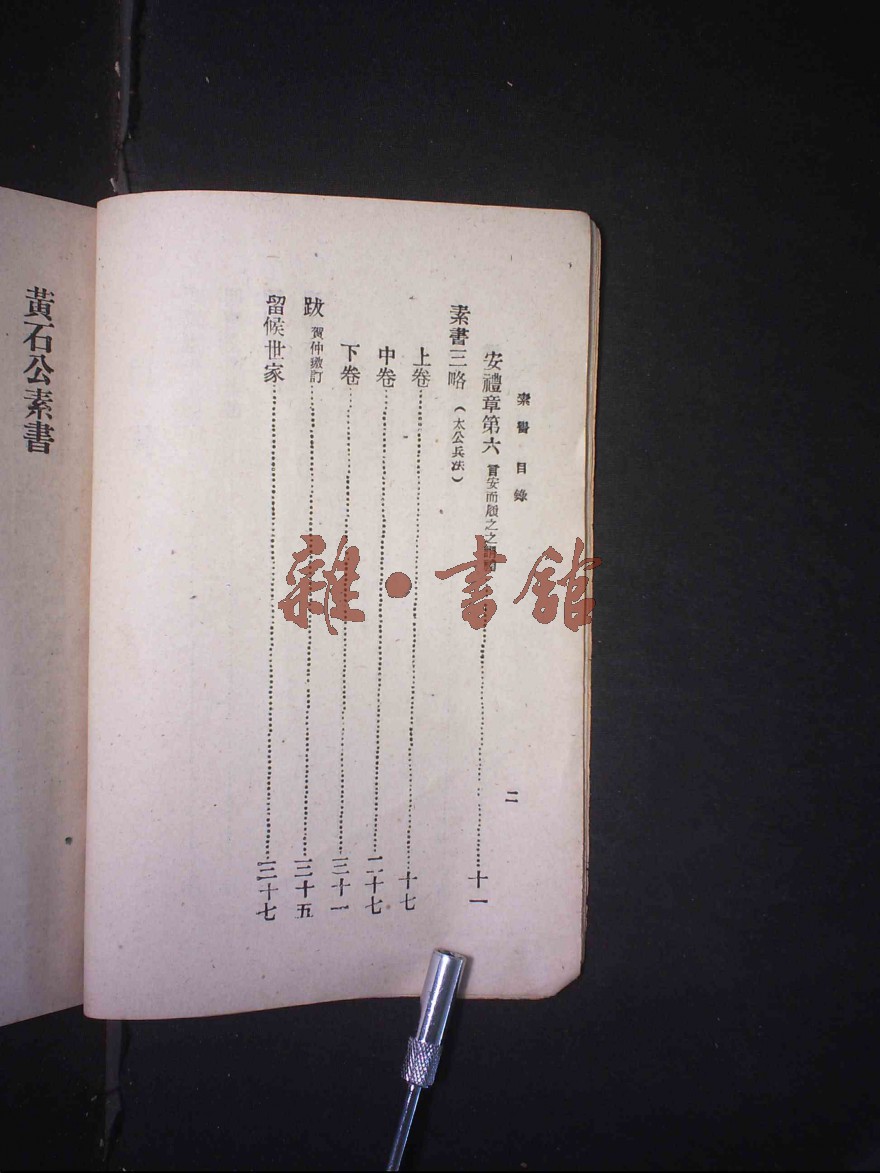 素書目錄
二
安禮章第六 言安而履之之謂禮……十一
素書三略（太公兵法）
上卷……十七
中卷……二十七
下卷……三十一
跋 賀仲緻訂……三十五
留候世家……三十七
黃石公素書
雜·書館